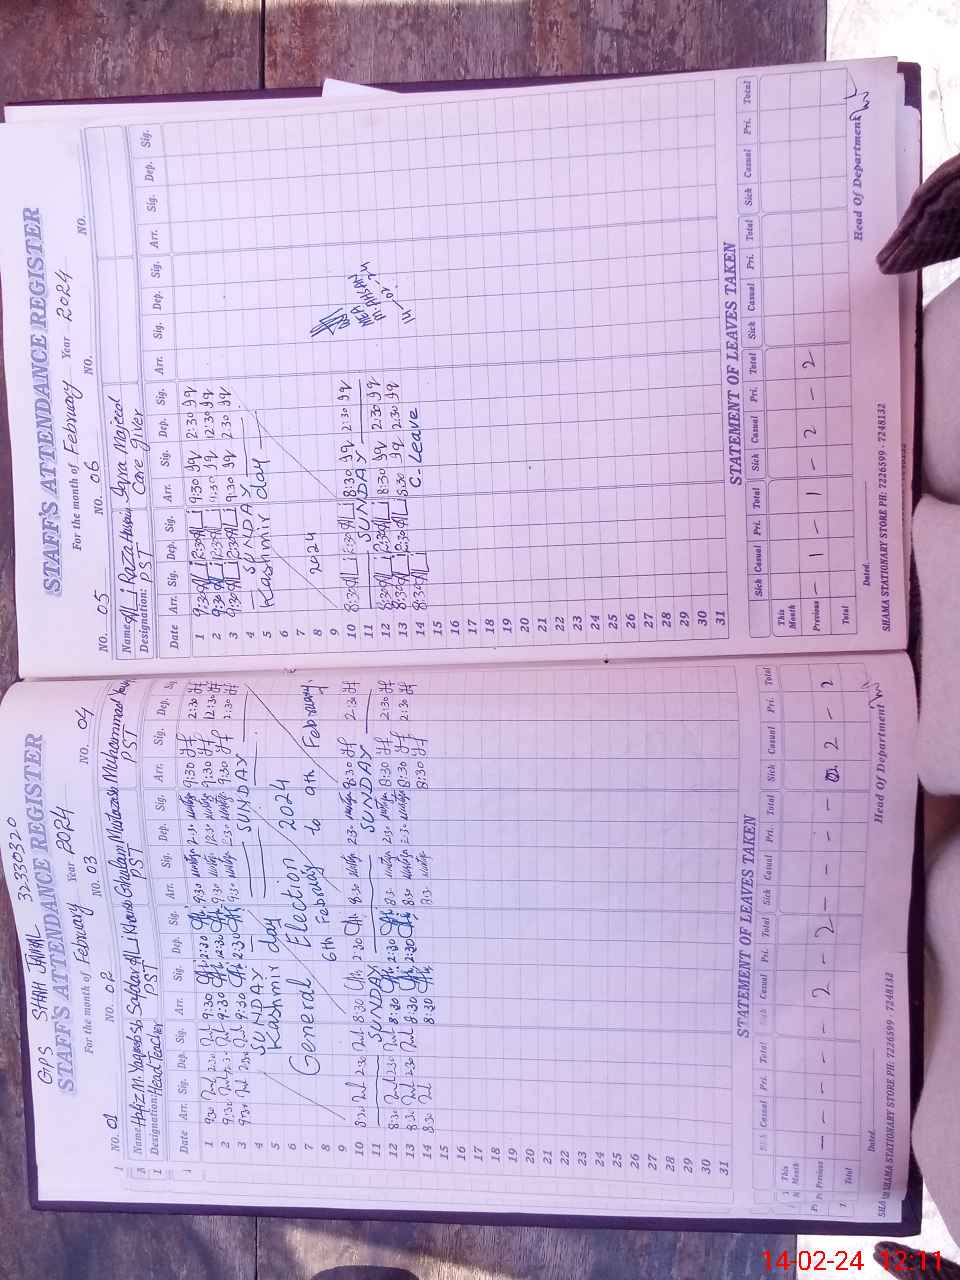 GPS SHAH JAMAL 32330320
STAFF'S ATTENDANCE REGISTER
For the month of February Year 2024
NO. 01 NO. 02 NO. 03 NO. 04
Name Hafiz M. Yaqoob Sb Safdar Ali Khan Ghulam Murtaza Muhammad
Designation: Head Teacher PST PST PST
Date Arr. Sig. Dep. Sig. Arr. Sig. Dep. Sig. Arr. Sig. Dep. Sig. Arr. Sig. Dep. Sig
1 9:30 2:30 9:30 2:30 9:30 2:30 9:30 2:30
2 9:30 12:30 9:30 12:30 9:30 12:30 9:30 12:30
3 9:30 2:30 9:30 2:30 9:30 2:30 9:30 2:30
4 SUNDAY SUNDAY
5 Kashmir day
6
7 General Election 2024
8 6th February to 9th February.
9
10 8:30 2:30 8:30 2:30 8:30 2:30 8:30 2:30
11 SUNDAY SUNDAY
12 8:30 2:30 8:30 2:30 8:30 2:30 8:30 2:30
13 8:30 2:30 8:30 2:30 8:30 2:30 8:30 2:30
14 8:30 8:30 8:30 8:30
15
16
17
18
19
20
21
22
23
24
25
26
27
28
29
30
31
STATEMENT OF LEAVES TAKEN
Sick Casual Pri. Total Sick Casual Pri. Total Sick Casual Pri. Total Sick Casual Pri. Total
This Month
Previous - - - - - 2 - 2 - - - - 0 2 - 2
Total
Dated.
Head Of Department
SHAMA STATIONARY STORE PH: 7226599 - 7248132
STAFF'S ATTENDANCE REGISTER
For the month of February Year 2024
NO. 05 NO. 06 NO. NO.
Name Ali Raza Hussain Iqra Majeed
Designation: PST Care Giver
Date Arr. Sig. Dep. Sig. Arr. Sig. Dep. Sig. Arr. Sig. Dep. Sig. Arr. Sig. Dep. Sig.
1 9:30 Ali 2:30 Ali 9:30 Iq 2:30 Iq
2 9:30 Ali 12:30 Ali 9:30 Iq 12:30 Iq
3 9:30 Ali 2:30 Ali 9:30 Iq 2:30 Iq
4 SUNDAY
5 Kashmir day
6
7
8 2024
9
10 8:30 Ali 2:30 Ali 8:30 Iq 2:30 Iq
11 SUNDAY
12 8:30 Ali 2:30 Ali 8:30 Iq 2:30 Iq
13 8:30 Ali 2:30 Ali 8:30 Iq 2:30 Iq
14 8:30 Ali C. Leave
15
16
17
18
19
20
21
22
23
24
25
26
27
28
29
30
31
STATEMENT OF LEAVES TAKEN
Sick Casual Pri. Total Sick Casual Pri. Total Sick Casual Pri. Total Sick Casual Pri. Total
This Month
Previous - 1 - 1 - 2 - 2
Total
Dated.
Head Of Department
SHAMA STATIONARY STORE PH: 7226599 - 7248132
14-02-24 12:11